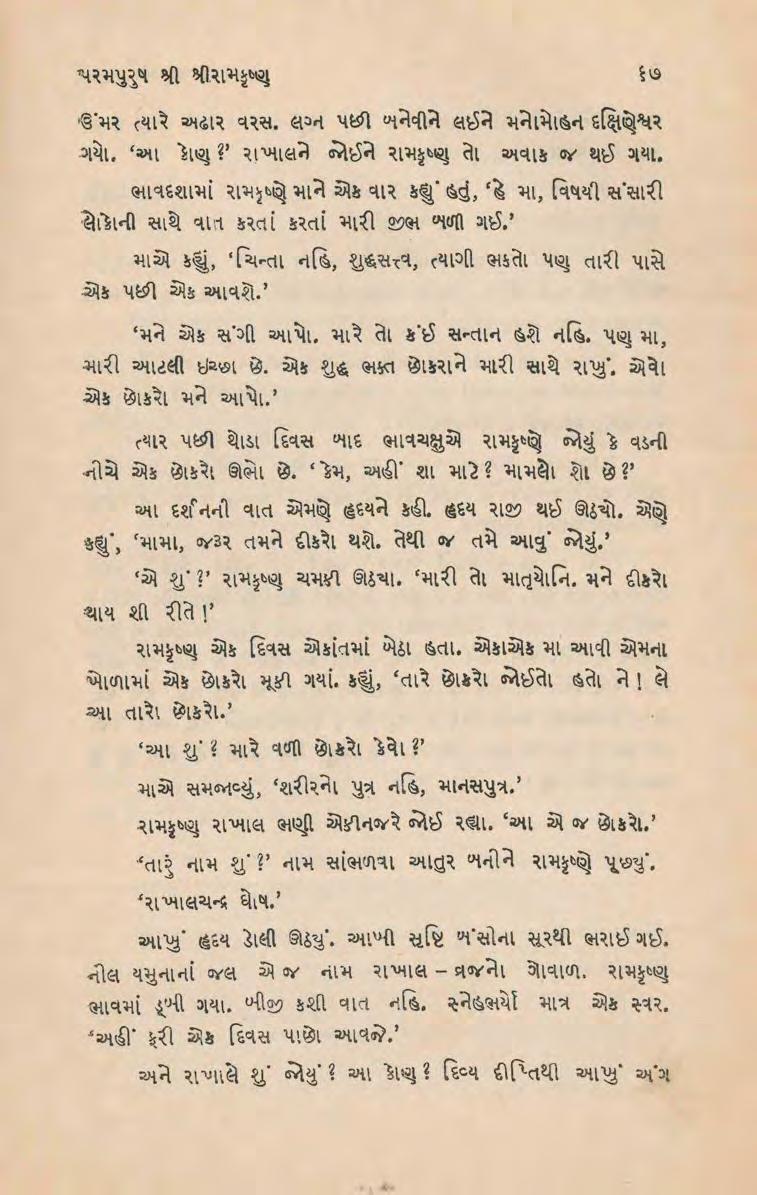 પરમપુરુષ શ્રી શ્રીરામકૃષ્ણ ૬૭
ઉંમર ત્યારે અઢાર વરસ. લગ્ન પછી બનેવીને લઈને મનોમોહન દક્ષિણેશ્વર
ગયો. ‘આ કોણ ?’ રાખાલને જોઈને રામકૃષ્ણ તો અવાક જ થઈ ગયા.
ભાવદશામાં રામકૃષ્ણે માને એક વાર કહ્યું હતું, ‘હે મા, વિષયી સંસારી
લોકોની સાથે વાત કરતાં કરતાં મારી જીભ બળી ગઈ.’
માએ કહ્યું, ‘ચિન્તા નહિ, શુદ્ધસત્ત્વ, ત્યાગી ભકતો પણ તારી પાસે
એક પછી એક આવશે.’
‘મને એક સંગી આપો. મારે તો કંઈ સન્તાન હશે નહિ. પણ મા,
મારી આટલી ઇચ્છા છે. એક શુદ્ધ ભક્ત છોકરાને મારી સાથે રાખું. એવો
એક છોકરો મને આપો.’
ત્યાર પછી થોડા દિવસ બાદ ભાવચક્ષુએ રામકૃષ્ણે જોયું કે વડની
નીચે એક છોકરો ઊભો છે. ‘કેમ, અહીં શા માટે ? મામલો શો છે ?’
આ દર્શનની વાત એમણે હૃદયને કહી. હૃદય રાજી થઈ ઊઠયો. એણે
કહ્યું, ‘મામા, જરૂર તમને દીકરો થશે. તેથી જ તમે આવું જોયું.’
‘એ શું ?’ રામકૃષ્ણ ચમકી ઊઠયા. ‘મારી તો માતૃયોનિ. મને દીકરો
થાય શી રીતે !’
રામકૃષ્ણ એક દિવસ એકાંતમાં બેઠા હતા. એકાએક મા આવી એમના
ખોળામાં એક છોકરો મૂકી ગયાં. કહ્યું, ‘તારે છોકરો જોઈતો હતો ને ! લે
આ તારો છોકરો.’
‘આ શું ? મારે વળી છોકરો કેવો ?’
માએ સમજાવ્યું, ‘શરીરનો પુત્ર નહિ, માનસપુત્ર.’
રામકૃષ્ણ રાખાલ ભણી એકીનજરે જોઈ રહ્યા. ‘આ એ જ છોકરો.’
‘તારું નામ શું ?’ નામ સાંભળવા આતુર બનીને રામકૃષ્ણે પૂછ્યું.
‘રાખાલચન્દ્ર ઘોષ.’
આખું હૃદય ડોલી ઊઠયું. આખી સૃષ્ટિ બંસીના સૂરથી ભરાઈ ગઈ.
નીલ યમુનાનાં જલ એ જ નામ રાખાલ – વ્રજનો ગોવાળ. રામકૃષ્ણ
ભાવમાં ડૂબી ગયા. બીજી કશી વાત નહિ. સ્નેહભર્યો માત્ર એક સ્વર.
‘અહીં ફરી એક દિવસ પાછો આવજે.’
અને રાખાલે શું જોયું ? આ કોણ ? દિવ્ય દીપ્તિથી આખું અંગ